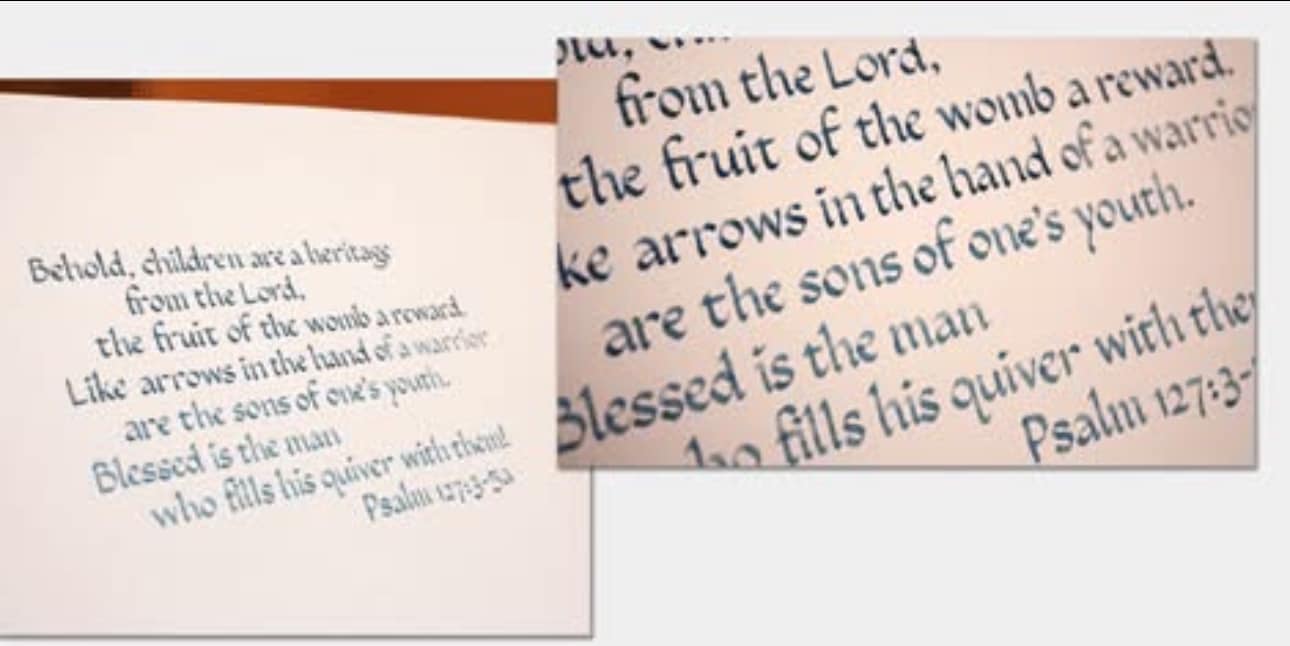 Behold, children are a heritage
from the Lord,
the fruit of the womb a reward.
Like arrows in the hand of a warrior
are the sons of one's youth.
Blessed is the man
who fills his quiver with them!
Psalm 127:3-5a
from the Lord,
the fruit of the womb a reward.
ke arrows in the hand of a warrio
are the sons of one's youth.
Blessed is the man
ho fills his quiver with the
Psalm 127:3-